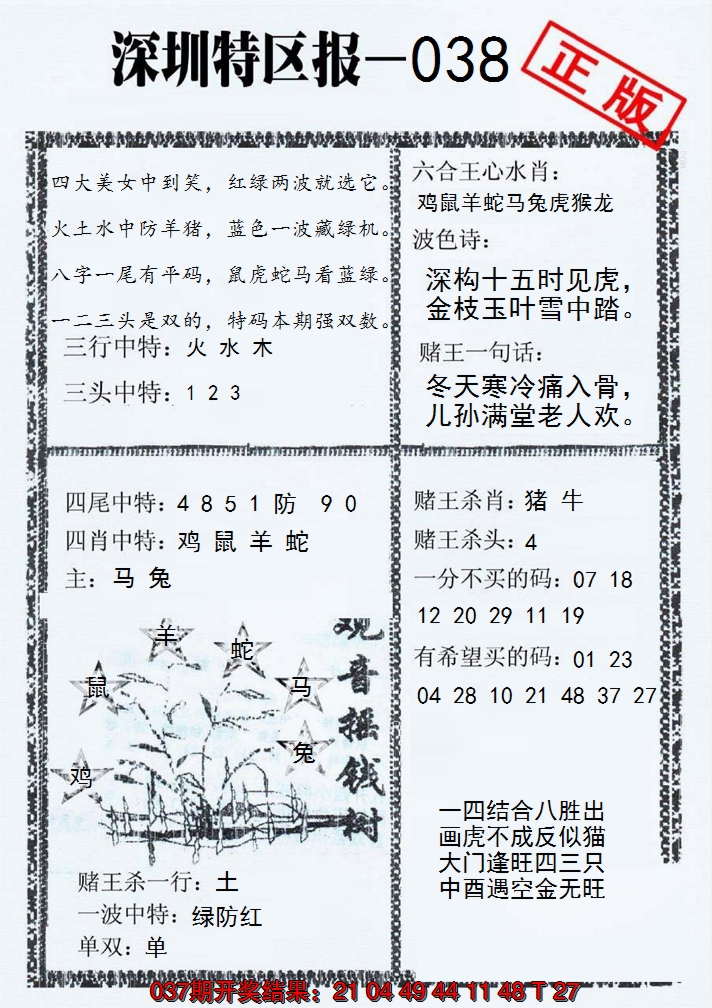 深圳特区报—038
正版
四大美女中到笑，红绿两波就选它。
火土水中防羊猪，蓝色一波藏绿机。
八字一尾有平码，鼠虎蛇马看蓝绿。
一二三头是双的，特码本期强双数。
三行中特：火 水 木
三头中特：1 2 3
六合王心水肖：
鸡鼠羊蛇马兔虎猴龙
波色诗：
深构十五时见虎，
金枝玉叶雪中踏。
赌王一句话：
冬天寒冷痛入骨，
儿孙满堂老人欢。
四尾中特：4 8 5 1 防 9 0
四肖中特：鸡 鼠 羊 蛇
主：马 兔
羊
蛇
鼠
马
兔
鸡
观音摇钱树
赌王杀一行：土
一波中特：绿防红
单双：单
赌王杀肖：猪 牛
赌王杀头：4
一分不买的码：07 18
12 20 29 11 19
有希望买的码：01 23
04 28 10 21 48 37 27
一四结合八胜出
画虎不成反似猫
大门逢旺四三只
中酉遇空金无旺
037期开奖结果：21 04 49 44 11 48 T 27